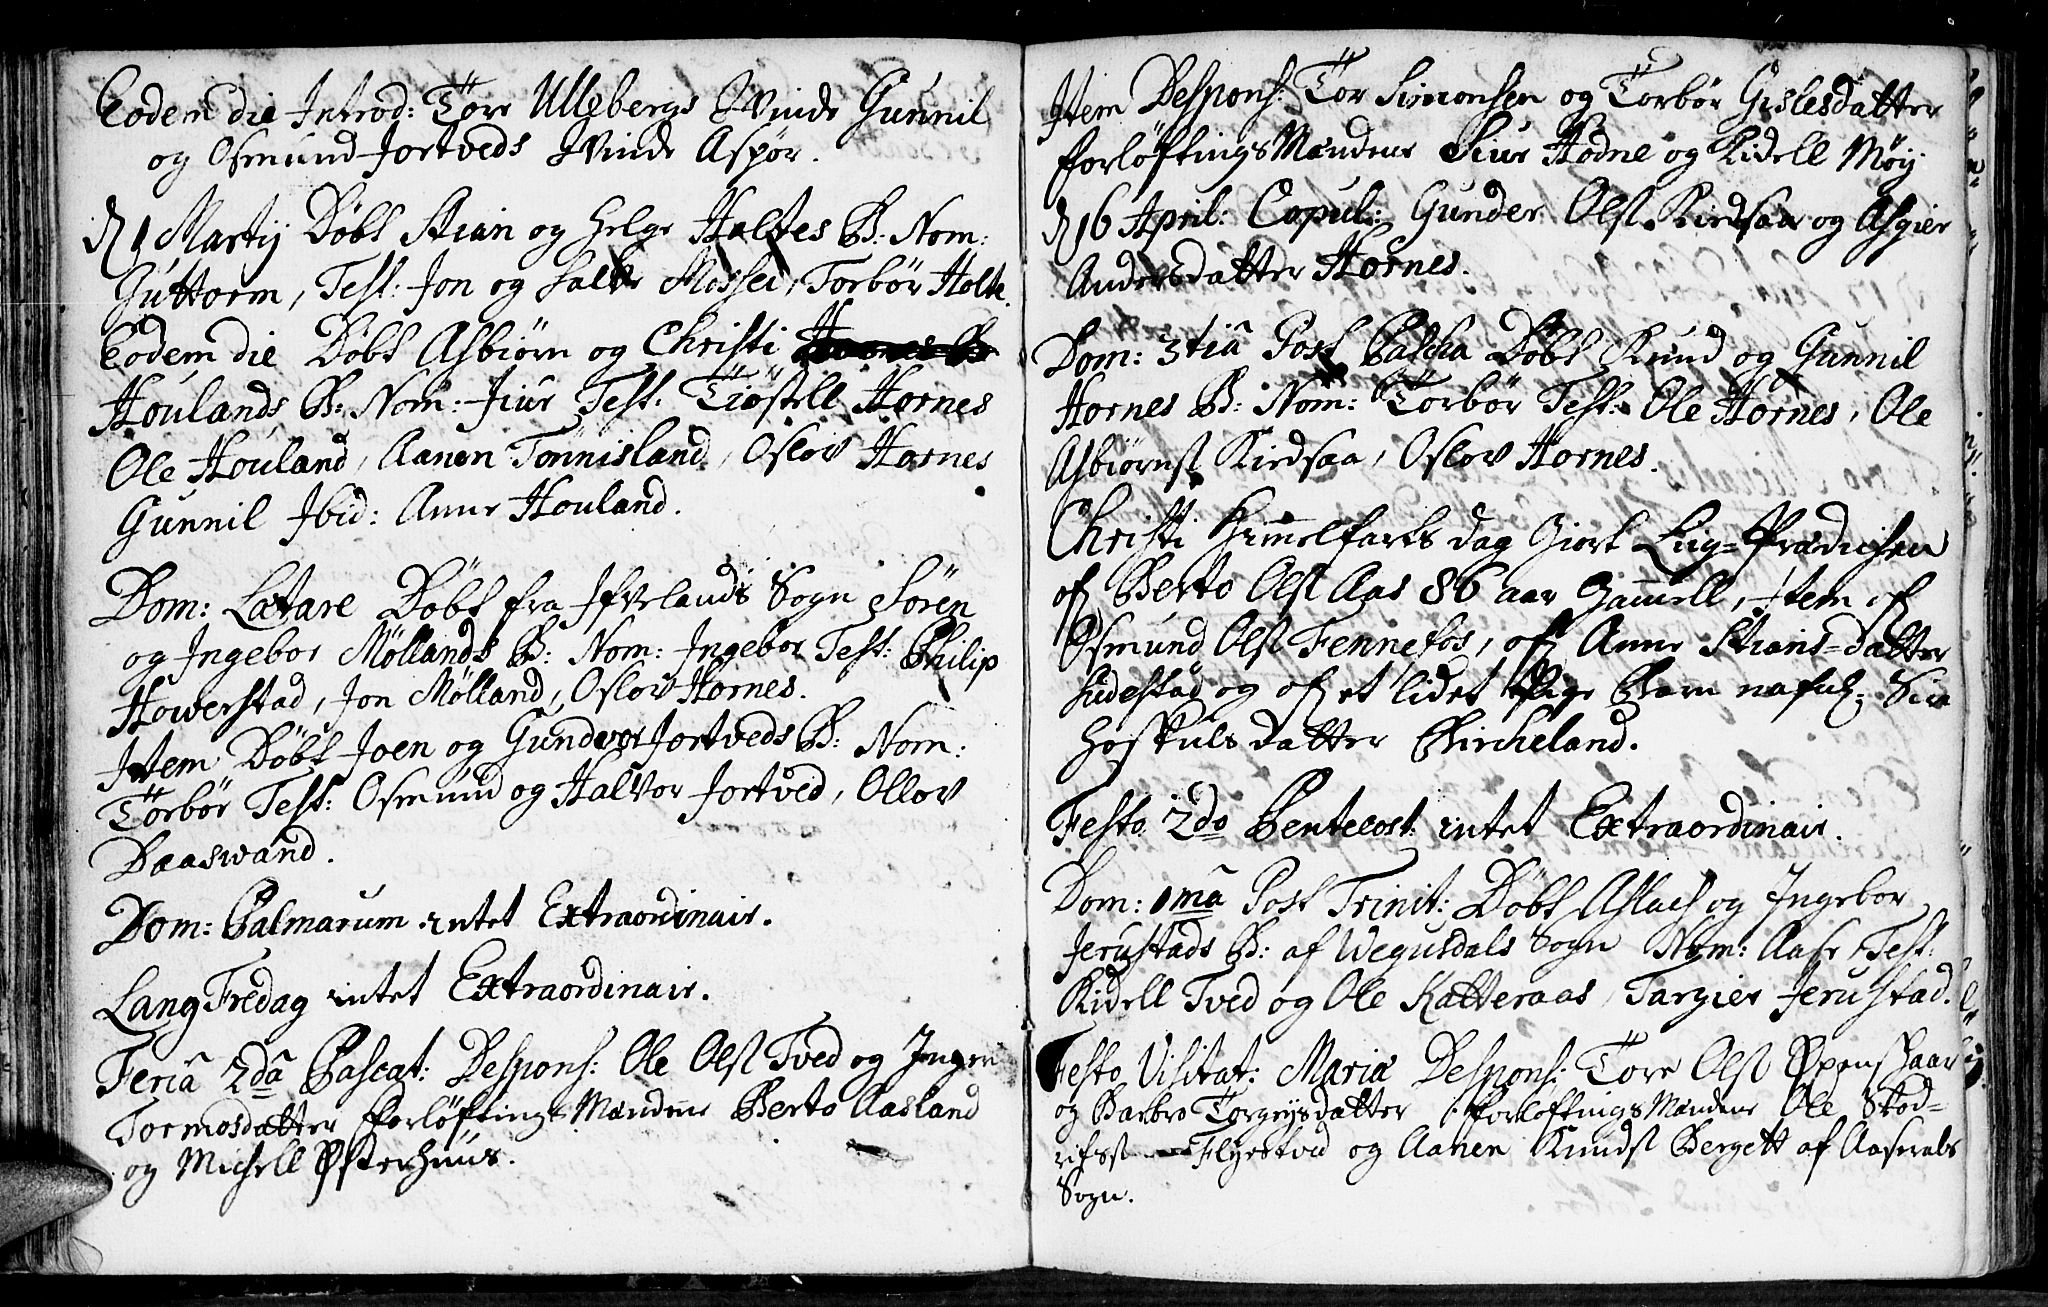 Eodem die Introd: Tore Ullebergs Qvinde Gunnil
og Osmund Jortveds Qvinde Aspør.
d 1 Martij Døbt Stian og Helge Haltes B: Nom:
Guttorm, Test: Jon og Salve Mossei, Torbør Holte.
Eodem die Døbt Asbiørn og Christi
Houlands B: Nom: Siur Test: Tiøstell Hornes
Ole Houland, Aanen Tønnisland, Oslov Hornes
Gunnil Ibid: Anne Houland.
Dom: Lætare Døbt fra Ifvelands Sogn Søren
og Ingebor Møllands B: Nom: Ingebor Test: Philip
Howerstad, Jon Mølland, Oslov Hornes.
Item Døbt Joen og Gundvor Jortveds B: Nom:
Torbør Test: Osmund og Halvor Jortved, Ollov
Daaswand.
Dom: Palmarum intet Extraordinair.
Lang Fredag intet Extraordinair.
Feriâ 2dâ Pascat: Despons: Ole Olss Tved og Ingeri
Tormosdatter Forløftings Mændene Berto Aasland
og Michell Østerhuus.
Item Despons: Tor Simonsen og Torbør Gislesdatter
Forløftings Mændene Siur Hodne og Kidell Møy
d 16 April: Copul: Gunder Olss Kirdsaa og Asgier
Andersdatter Hornes.
Dom: 3tiâ Post Pascha Døbt Knud og Gunnil
Hornes B: Nom: Torbør Test: Ole Hornes, Ole
Asbiørnss Kirdsaa, Oslov Hornes.
Christi Himmelfarts dag Giort Liig=Prædichen
of Berto Olss Aas 86 aar Gammell, Item of
Osmund Olss Fennefos, of Anne Stians=datter
Hudestad og of et lidet Pige Barn nafnl: Siri
Høskuls datter Birckeland.
Festo 2do Pentecost: intet Extraordinair.
Dom: 1mâ Post Trinit: Døbt Aslach og Ingebor
Jerustads B: af Wegusdals Sogn Nom: Aase, Test:
Kidell Tved og Ole Katteraas, Targier Jerustad.
Festo Visitat: Mariæ Despons: Tore Olss Øpenskaar
og Barbro Torgeysdatter Forløftings Mændene Ole Stod=
rifss Flyestved og Aanen Knudss Bergett af Aaserals
Sogn.